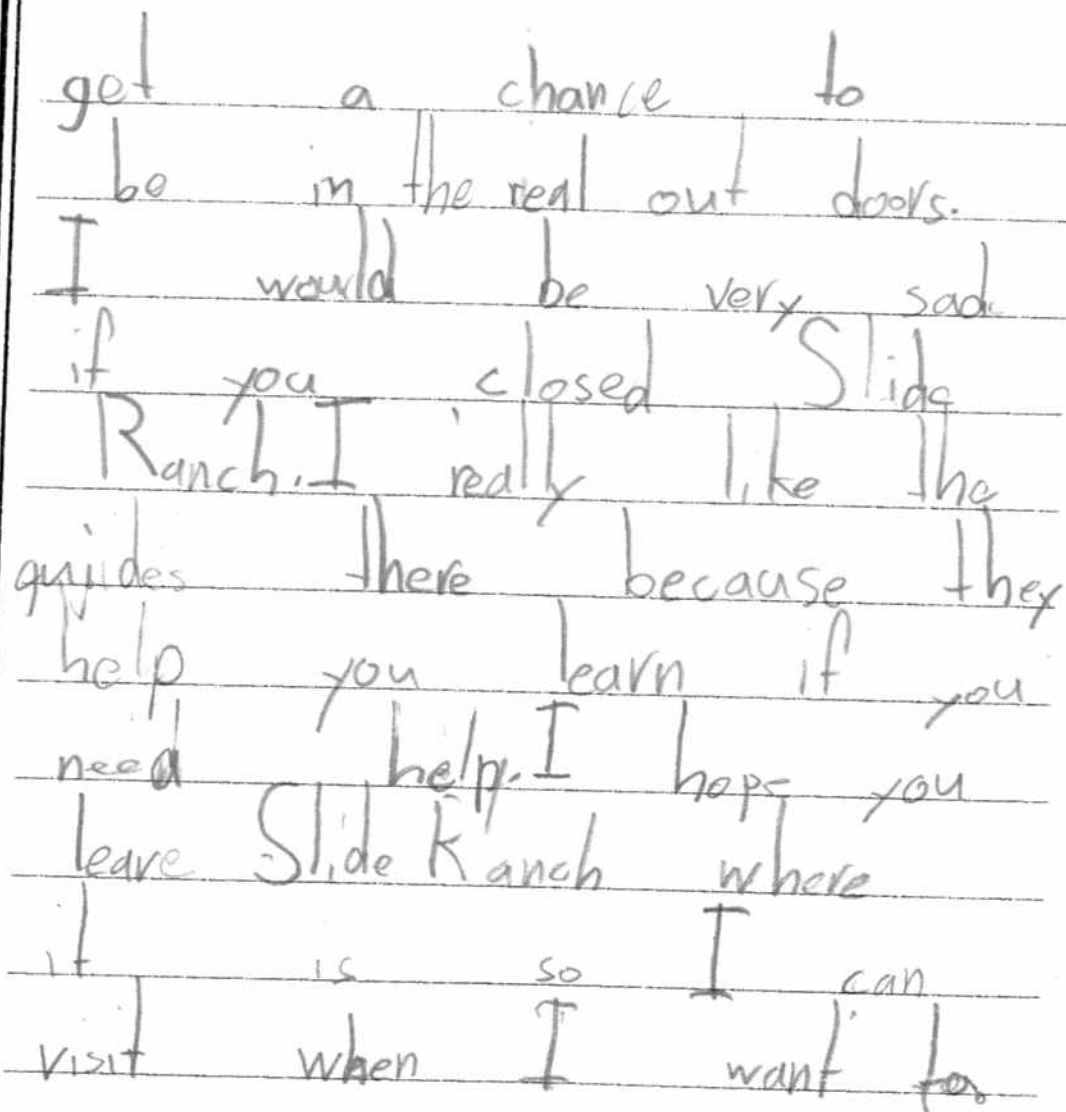 get a chance to
be in the real out doors.
I would be very sad
if you closed Slide
Ranch. I really like the
guides there because they
help you learn if you
need help. I hope you
leave Slide Ranch where
it is so I can
visit when I want to.